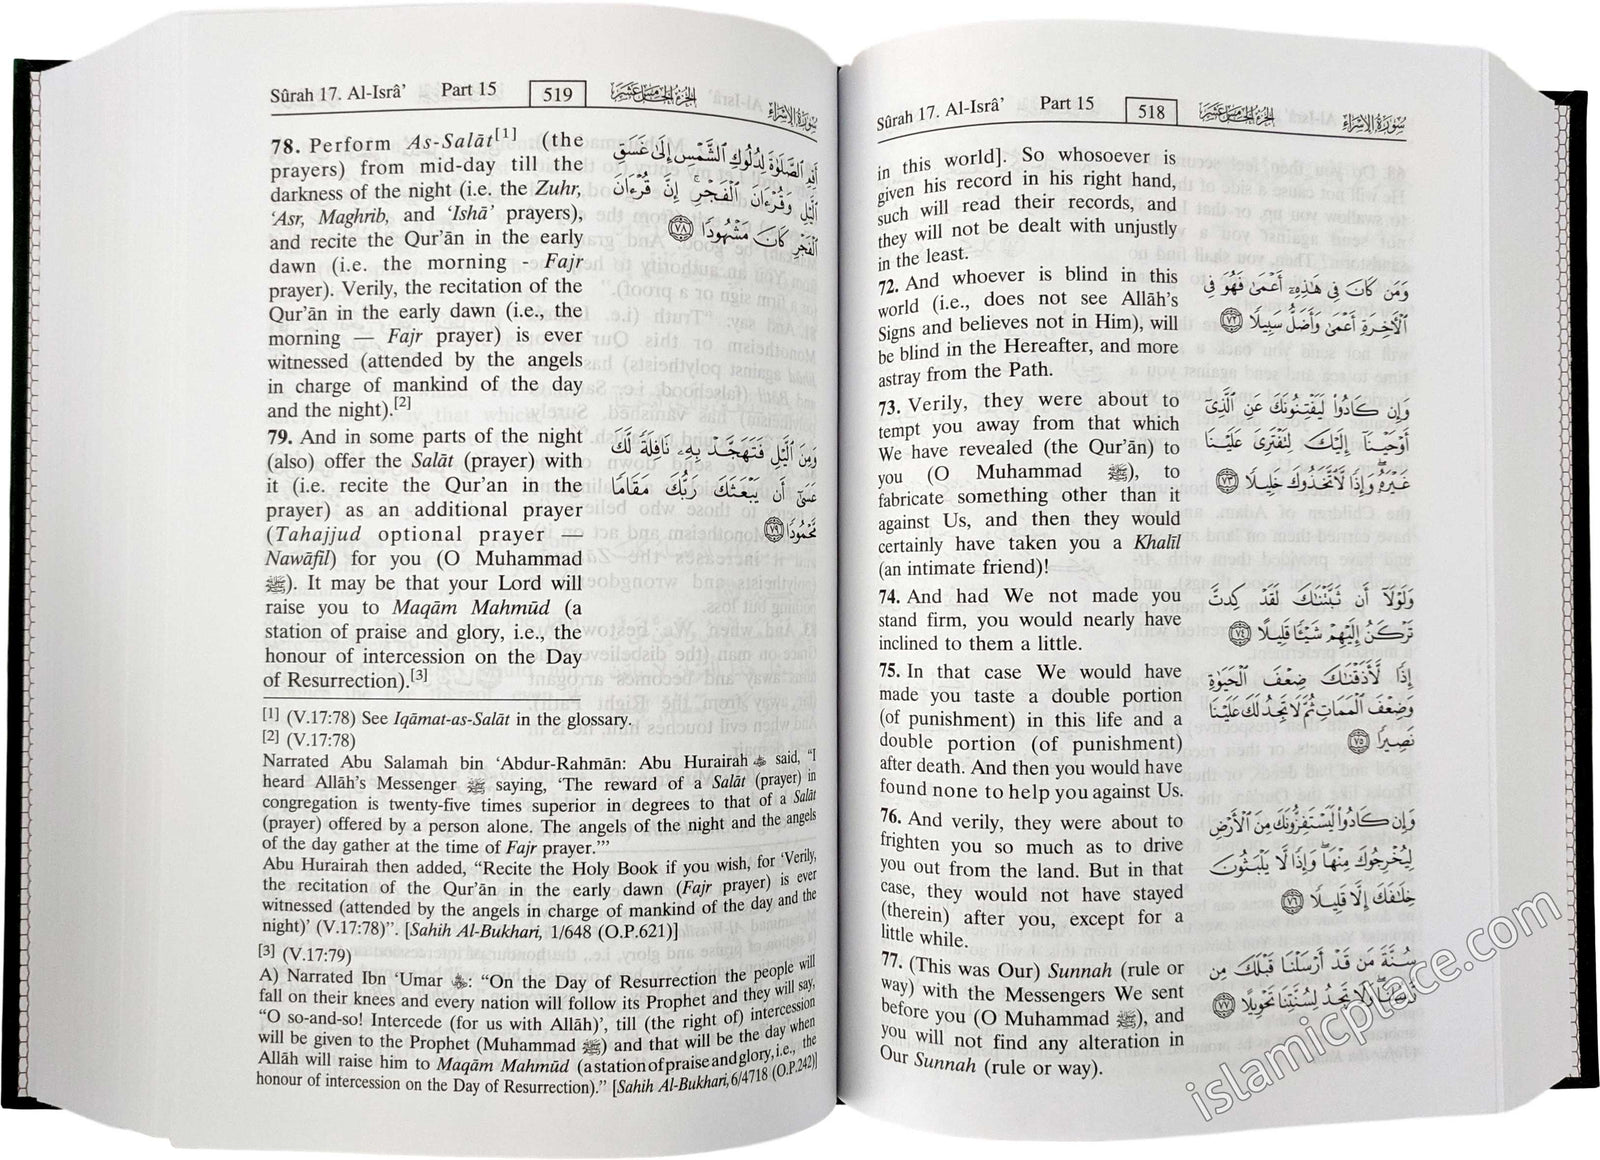 Sûrah 17. Al-Isrâ’ Part 15 518 الجزء الخامس عشر سورة الإسراء
in this world]. So whosoever is
given his record in his right hand,
such will read their records, and
they will not be dealt with unjustly
in the least.
72. And whoever is blind in this
world (i.e., does not see Allāh’s
Signs and believes not in Him), will
be blind in the Hereafter, and more
astray from the Path.
وَمَن كَانَ فِي هَٰذِهِۦٓ أَعْمَىٰ فَهُوَ فِي
ٱلْأَخِرَةِ أَعْمَىٰ وَأَضَلُّ سَبِيلًا ٧٢
73. Verily, they were about to
tempt you away from that which
We have revealed (the Qur’ān) to
you (O Muhammad ﷺ), to
fabricate something other than it
against Us, and then they would
certainly have taken you a Khalīl
(an intimate friend)!
وَإِن كَادُوا۟ لَيَفْتِنُونَكَ عَنِ ٱلَّذِىٓ
أَوْحَيْنَآ إِلَيْكَ لِتَفْتَرِىَ عَلَيْنَا
غَيْرَهُۥ وَإِذًا لَّٱتَّخَذُوكَ خَلِيلًا ٧٣
74. And had We not made you
stand firm, you would nearly have
inclined to them a little.
وَلَوْلَآ أَن ثَبَّتْنَٰكَ لَقَدْ كِدتَّ
تَرْكَنُ إِلَيْهِمْ شَيْـًٔا قَلِيلًا ٧٤
75. In that case We would have
made you taste a double portion
(of punishment) in this life and a
double portion (of punishment)
after death. And then you would have
found none to help you against Us.
إِذًا لَّأَذَقْنَٰكَ ضِعْفَ ٱلْحَيَوٰةِ
وَضِعْفَ ٱلْمَمَاتِ ثُمَّ لَا تَجِدُ لَكَ عَلَيْنَا
نَصِيرًا ٧٥
76. And verily, they were about to
frighten you so much as to drive
you out from the land. But in that
case, they would not have stayed
(therein) after you, except for a
little while.
وَإِن كَادُوا۟ لَيَسْتَفِزُّونَكَ مِنَ ٱلْأَرْضِ
لِيُخْرِجُوكَ مِنْهَا وَإِذًا لَّا يَلْبَثُونَ
خِلَٰفَكَ إِلَّا قَلِيلًا ٧٦
77. (This was Our) Sunnah (rule or
way) with the Messengers We sent
before you (O Muhammad ﷺ), and
you will not find any alteration in
Our Sunnah (rule or way).
سُنَّةَ مَن قَدْ أَرْسَلْنَا قَبْلَكَ مِن
وَلَا تَجِدُ لِسُنَّتِنَا تَحْوِيلًا ٧٧
Sûrah 17. Al-Isrâ’ Part 15 519 الجزء الخامس عشر سورة الإسراء
78. Perform As-Salāt[1] (the
prayers) from mid-day till the
darkness of the night (i.e. the Zuhr,
‘Asr, Maghrib, and ‘Ishā’ prayers),
and recite the Qur’ān in the early
dawn (i.e. the morning - Fajr
prayer). Verily, the recitation of the
Qur’ān in the early dawn (i.e., the
morning — Fajr prayer) is ever
witnessed (attended by the angels
in charge of mankind of the day
and the night).[2]
أَقِمِ ٱلصَّلَوٰةَ لِدُلُوكِ ٱلشَّمْسِ إِلَىٰ غَسَقِ
ٱلَّيْلِ وَقُرْءَانَ ٱلْفَجْرِ إِنَّ قُرْءَانَ
ٱلْفَجْرِ كَانَ مَشْهُودًا ٧٨
79. And in some parts of the night
(also) offer the Salāt (prayer) with
it (i.e. recite the Qur’an in the
prayer) as an additional prayer
(Tahajjud optional prayer —
Nawāfil) for you (O Muhammad
ﷺ). It may be that your Lord will
raise you to Maqām Mahmūd (a
station of praise and glory, i.e., the
honour of intercession on the Day
of Resurrection).[3]
وَمِنَ ٱلَّيْلِ فَتَهَجَّدْ بِهِۦ نَافِلَةً لَّكَ
عَسَىٰٓ أَن يَبْعَثَكَ رَبُّكَ مَقَامًا
مَّحْمُودًا ٧٩
[1] (V.17:78) See Iqāmat-as-Salāt in the glossary.
[2] (V.17:78)
Narrated Abu Salamah bin ‘Abdur-Rahmān: Abu Hurairah said, “I
heard Allāh’s Messenger ﷺ saying, ‘The reward of a Salāt (prayer) in
congregation is twenty-five times superior in degrees to that of a Salāt
(prayer) offered by a person alone. The angels of the night and the angels
of the day gather at the time of Fajr prayer.’”
Abu Hurairah then added, “Recite the Holy Book if you wish, for ‘Verily,
the recitation of the Qur’ān in the early dawn (Fajr prayer) is ever
witnessed (attended by the angels in charge of mankind of the day and the
night)’ (V.17:78)”. [Sahih Al-Bukhari, 1/648 (O.P.621)]
[3] (V.17:79)
A) Narrated Ibn ‘Umar : “On the Day of Resurrection the people will
fall on their knees and every nation will follow its Prophet and they will say,
“O so-and-so! Intercede (for us with Allāh)’, till (the right of) intercession
will be given to the Prophet (Muhammad ﷺ) and that will be the day when
Allāh will raise him to Maqām Mahmūd (a station of praise and glory, i.e., the
honour of intercession on the Day of Resurrection).” [Sahih Al-Bukhari, 6/4718 (O.P.242)]
islamicplace.com